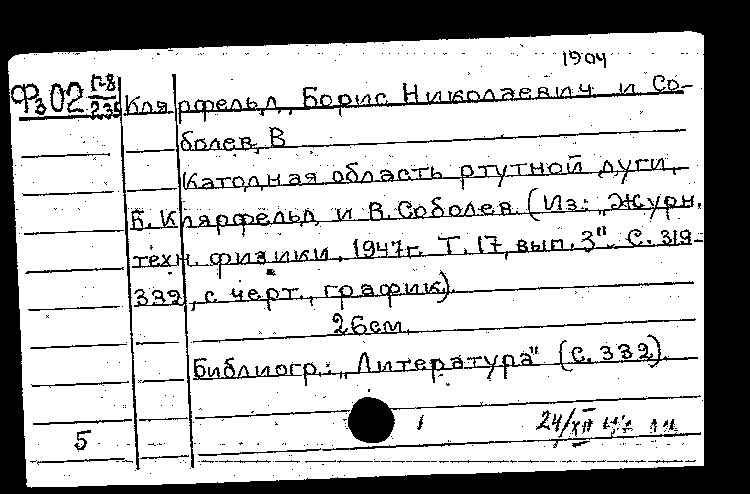 1904
Ф302 Г-8/235 Клярфельд, Борис Николаевич и Со-
болев, В
Катодная область ртутной дуги.
Б. Клярфельд и В. Соболев (Из: „Журн.
техн. физики. 1947г. Т. 17, вып. 3". С. 319-
332, с черт., график).
26см.
Библиогр.: „Литература" (с. 332).
5 1 24/XII